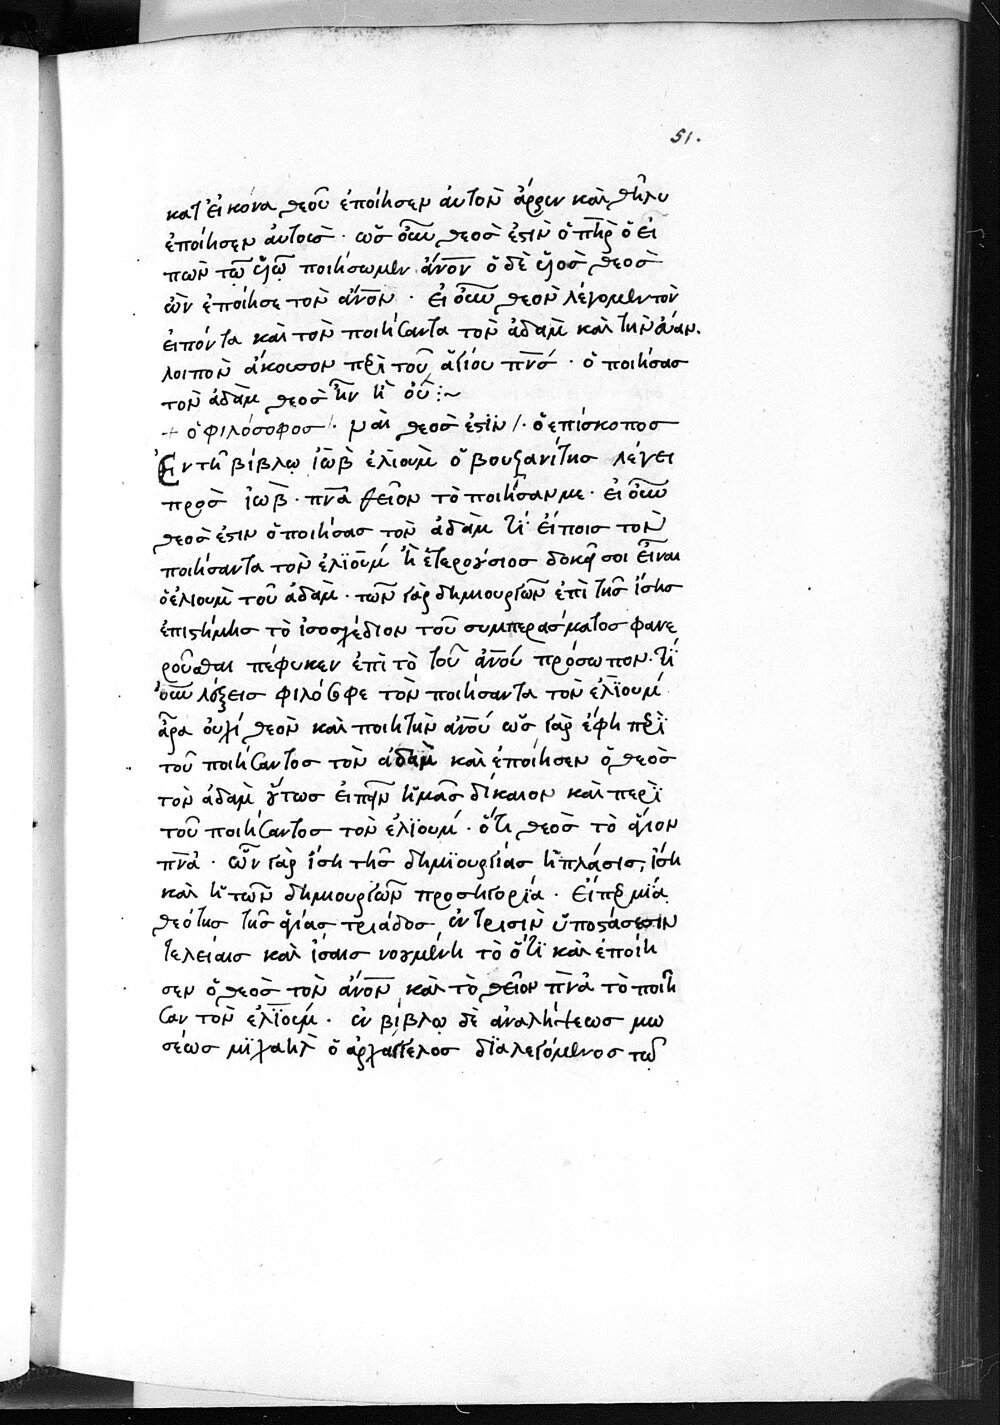 51.
κατ' εἰκόνα θεοῦ ἐποίησεν ἀυτὸν ἄρρεν καὶ θῆλυ
ἐποίησεν ἀυτους · ὡς οὖν θεὸσ ἐστὶν ὁ πη̅ρ ὁ εἰ
πὼν τῶ υἱῶ ποιήσωμεν ἀν̅ον ὁ δὲ υἱὸσ θεὸσ
ὢν ἐποίησε τὸν ἀν̅ον · εἰ οὖν θεὸν λέγομεν τὸν
ἐιπόντα καὶ τὸν ποιήσαντα τὸν ἀδὰμ καὶ τὴν ἐυαν.
λοιπὸν ἄκουσον περὶ τοῦ ἁγίου πν̅σ · ὁ ποιήσασ
τὸν ἀδὰμ θεὸσ ἦν ἢ οὔ :~
+ ὁ φιλόσοφοσ /· ναὶ θεὸσ ἐστϊν /· ὁ ἐπίσκοποσ
Ἐν τῆ βίβλω ἰὼβ ἐλιοὺμ ὁ βουζανίτησ λέγει
πρὸσ ἰὼβ · πν̅α θεῖον τὸ ποιῆσαν με · εἰ οὖν
θεὸσ ἐστιν ὁ ποιήσασ τὸν ἀδὰμ τί ἐίποισ τὸν
ποιήσαντα τὸν ἐλϊοὺμ ἢ ἑτερούσιοσ δοκεῖ σοι εἶναι
ὁ ἐλιοὺμ τοῦ ἀδὰμ · τῶν γὰρ δημιουργῶν ἐπὶ τῆσ ἴσησ
ἐπιστήμησ τὸ ἰσοστάδιον τοῦ συμπεράσματοσ φανε
ροῦσθαι πέφυκεν ἐπὶ τὸ τοῦ ἀν̅ου πρόσωπον · τί
οὖν λέξεισ φιλόσοφε τὸν ποιήσαντα τὸν ἐλϊουμ
ἆρα ουχὶ θεὸν καὶ ποιητὴν ἀν̅ου ὡσ γὰρ ἔφη περὶ
τοῦ ποιήσαντοσ τὸν ἀδὰμ καὶ ἐποίησεν ὁ θεὸσ
τὸν ἀδὰμ οὕτωσ ἐιπεῖν ἡμᾶσ δίκαιον καὶ περὶ
τοῦ ποιήσαντοσ τὸν ἐλϊουμ · ὅτι θεὸσ τὸ ἅγιον
πν̅α · ὧν γὰρ ἴση τῆσ δημϊουργίασ ἡ πλάσισ, ἴση
καὶ ἡ τῶν δημιουργῶν προσηγορία · Εἴπερ μία
θεότησ τῆσ ἁγίασ τριάδοσ ἐν τρισὶν ὑποστάσεσιν
τελείαισ καὶ ἴσαισ νοουμένη τὸ ὅτϊ καὶ ἐποίη
σεν ὁ θεὸσ τὸν ἀν̅ον καὶ τὸ θεῖον πν̅α τὸ ποιῆ
σαν τὸν ἐλϊουμ · ἐν βίβλω δὲ ἀναλήψεωσ μω
σέωσ μϊχαὴλ ὁ ἀρχάγγελοσ διαλεγόμενοσ τῶ